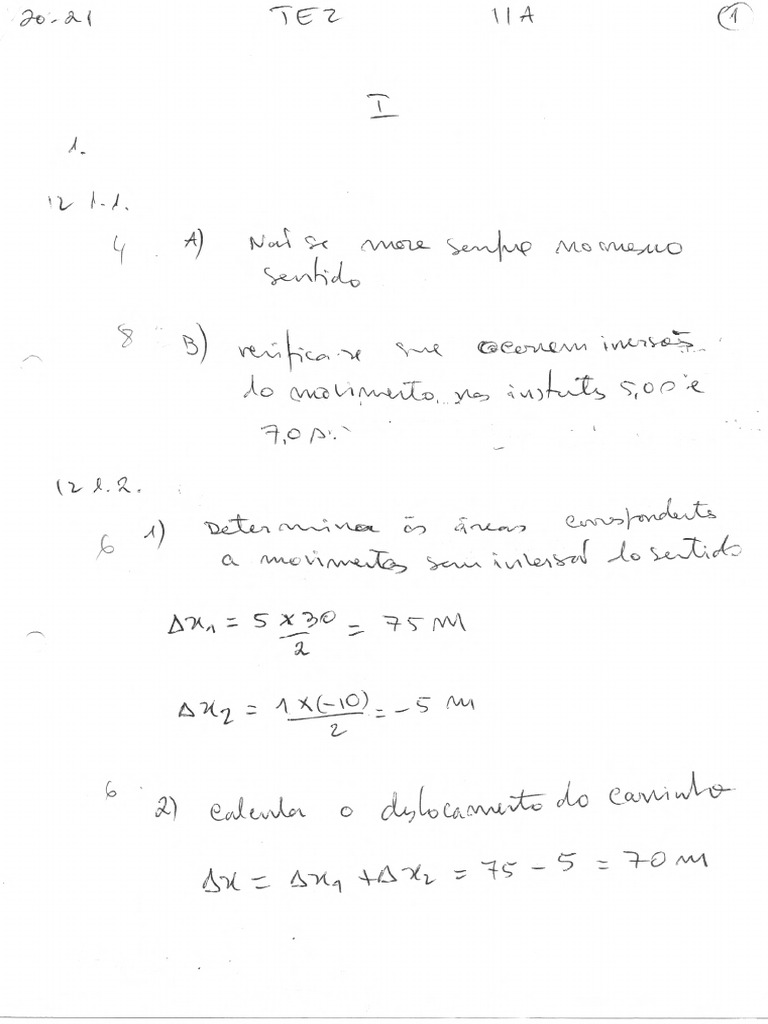 20-21 TE2 11A 1
I
1.
12 1.1.
4 A) Não se move sempre no mesmo
sentido
8 B) verifica-se que ocorrem inversões
do movimento, nos instantes 5,0 s e
7,0 s.
12 1.2.
6 1) Determina as áreas correspondentes
a movimentos sem inversão do sentido
Δx₁ = 5 × 30 / 2 = 75 m
Δx₂ = 1 × (-10) / 2 = - 5 m
6 2) Calcula o deslocamento do carrinho
Δx = Δx₁ + Δx₂ = 75 - 5 = 70 m